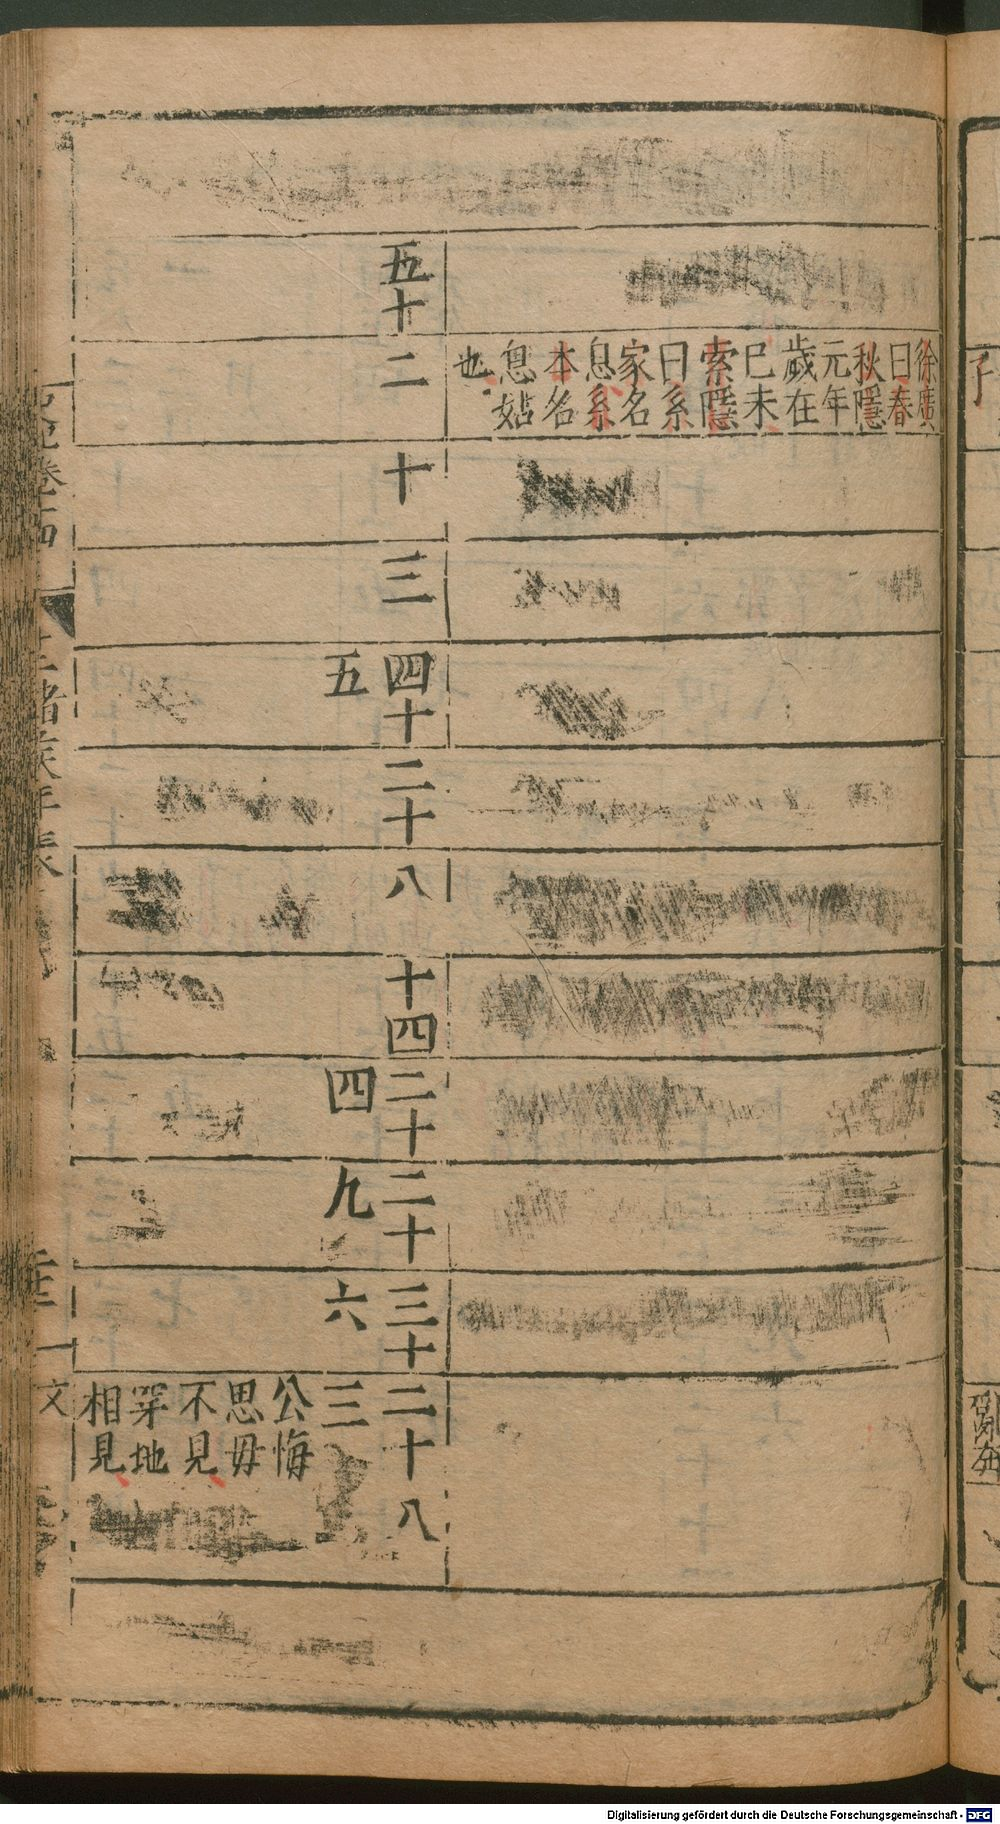 徐廣
曰春
秋隱
元年
歲在
巳未
索隱
曰系
家名
息系
本名
息姑
也
五十
二
十
三
四十
五
二十
八
十四
二十
四
二十
九
三十
六
二十
三
公悔
思毋
不見
穿地
相見
八
諸侯年表
Digitalisierung gefördert durch die Deutsche Forschungsgemeinschaft - DFG